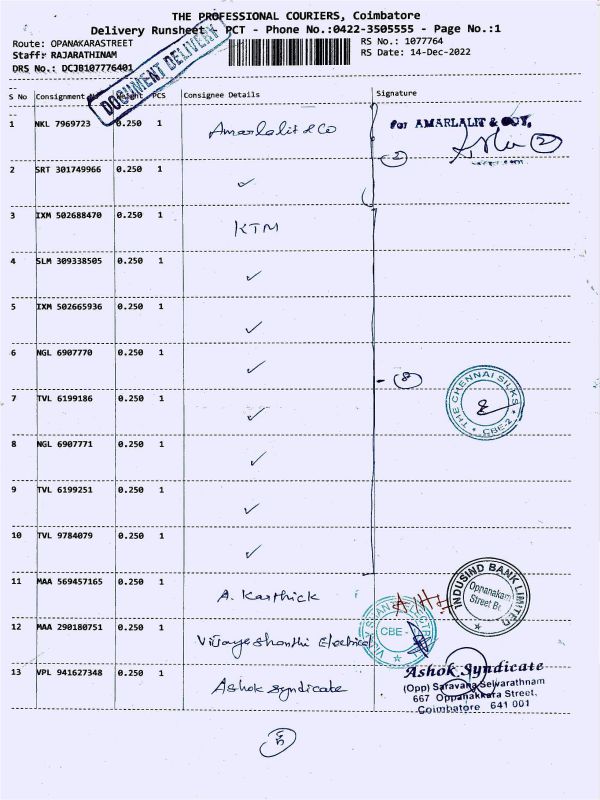 THE PROFESSIONAL COURIERS, Coimbatore
Delivery Runsheet - PCT - Phone No.:0422-3505555 - Page No.:1
Route: OPANAKARASTREET
RS No.: 1077764
Staff: RAJARATHINAM
RS Date: 14-Dec-2022
DRS No.: DCJB107776401
DOCUMENT DELIVERY
S No Consignment No PCS Consignee Details Signature
1 NKL 7969723 0.250 1 Amarlalit & Co For AMARLALIT & COY,
2
2 SRT 301749966 0.250 1 ✓ 2
3 IXM 502688470 0.250 1 KTM
4 SLM 309338505 0.250 1 ✓
5 IXM 502665936 0.250 1 ✓
6 NGL 6907770 0.250 1 ✓ - 8
THE CHENNAI SILKS
* CBE-2 *
7 TVL 6199186 0.250 1 ✓
8 NGL 6907771 0.250 1 ✓
9 TVL 6199251 0.250 1 ✓
10 TVL 9784079 0.250 1 ✓
11 MAA 569457165 0.250 1 A. Karthick
INDUSIND BANK LIMITED
Oppanakara
Street Br.
12 MAA 290180751 0.250 1 Vijayeshanthi Electrical
CBE -
13 VPL 941627348 0.250 1 Ashok Syndicate
Ashok Syndicate
(Opp) Saravana Selvarathnam
667 Oppanakkara Street,
Coimbatore 641 001